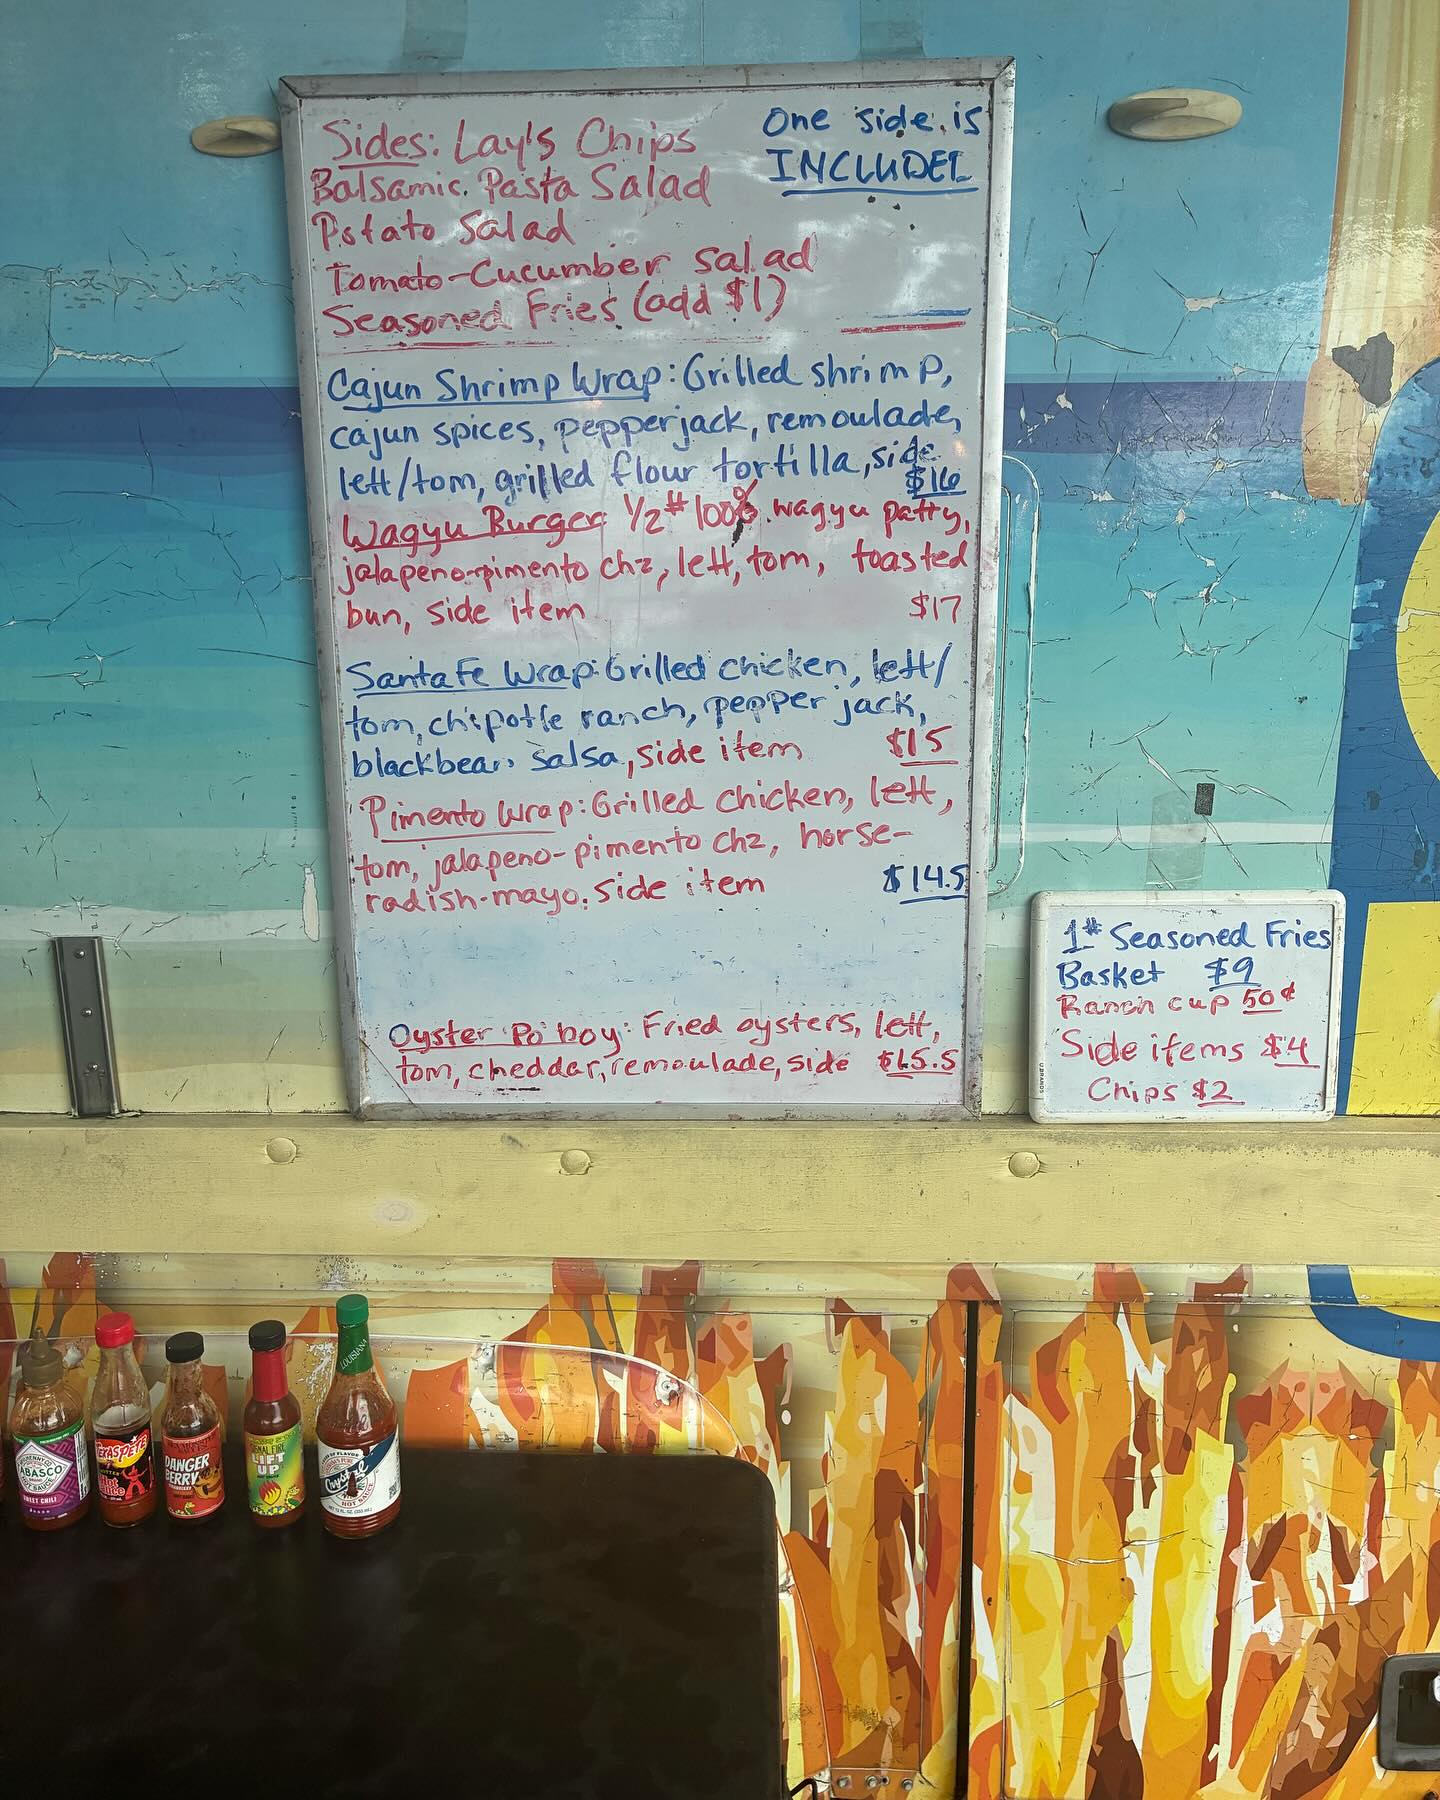 Sides: Lay's Chips
One side is
INCLUDED
Balsamic Pasta Salad
Potato Salad
Tomato-Cucumber salad
Seasoned Fries (add $1)
Cajun Shrimp Wrap: Grilled shrimp,
cajun spices, pepperjack, remoulade,
lett/tom, grilled flour tortilla, side
$16
Wagyu Burger 1/2# 100% wagyu patty,
jalapeno-pimento chz, lett, tom, toasted
bun, side item $17
Santa Fe Wrap: Grilled chicken, lett/
tom, chipotle ranch, pepper jack,
blackbean salsa, side item $15
Pimento Wrap: Grilled chicken, lett,
tom, jalapeno-pimento chz, horse-
radish-mayo, side item $14.5
Oyster Po boy: Fried oysters, lett,
tom, cheddar, remoulade, side $15.5
1# Seasoned Fries
Basket $9
Ranch cup 50¢
Side items $4
Chips $2
U BRANDS
LOUISIANA
TABASCO
SWEET CHILI
TEXAS PETE
Hot Sauce
DANGER
BERRY
SIGNAL FIRE
LIFT
UP
Crystal
HOT SAUCE